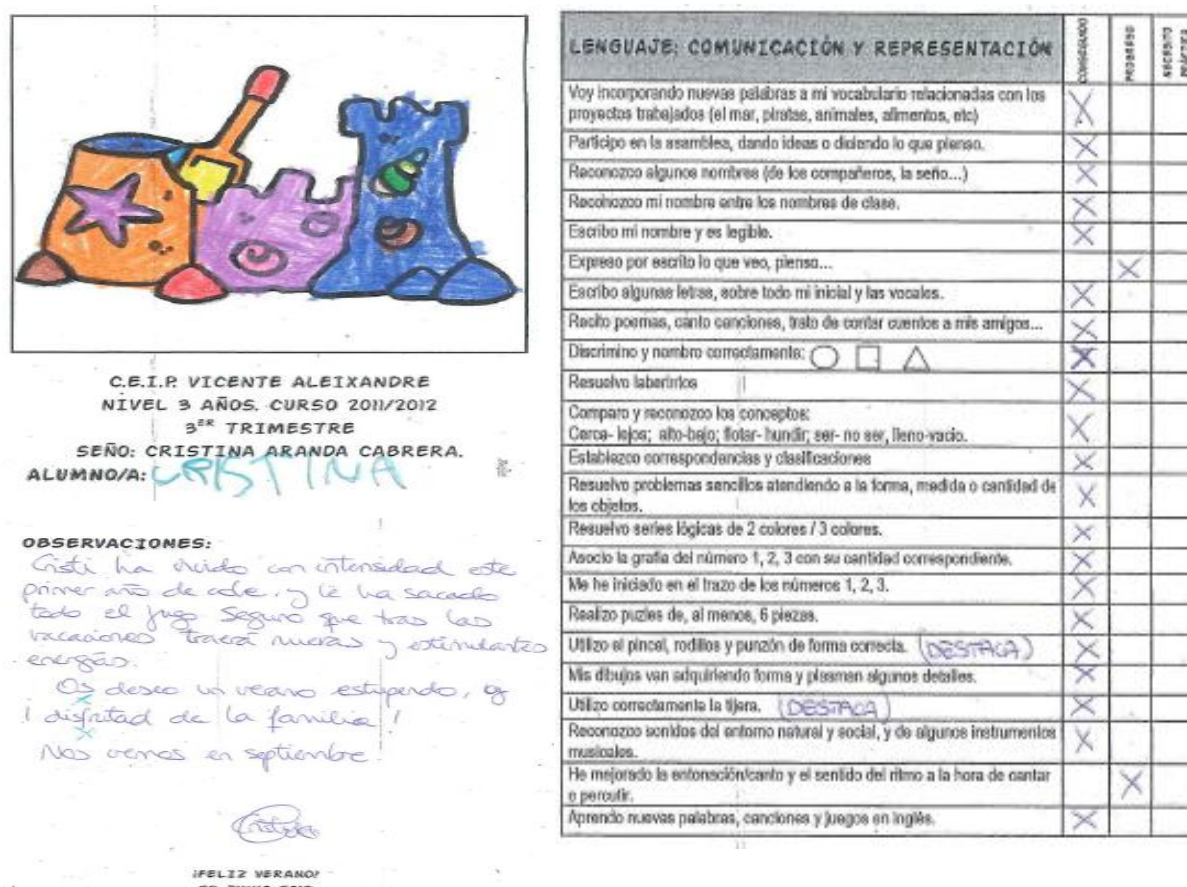 C.E.I.P. VICENTE ALEIXANDRE
NIVEL 3 AÑOS. CURSO 2011/2012
3ER TRIMESTRE
SEÑO: CRISTINA ARANDA CABRERA.
ALUMNO/A: CRISTINA
OBSERVACIONES:
Cristi ha vivido con intensidad este
primer año de cole, y le ha sacado
todo el jugo. Seguro que tras las
vacaciones traerá nuevas y estimulantes
energías.
Os deseo un verano estupendo,
¡disfrutad de la familia!
Nos vemos en septiembre.
¡FELIZ VERANO!
LENGUAJE: COMUNICACIÓN Y REPRESENTACIÓN
CONSEGUIDO
PROGRESO
NECESITO PRÁCTICA
Voy incorporando nuevas palabras a mi vocabulario relacionadas con los
proyectos trabajados (el mar, piratas, animales, alimentos, etc)
Participo en la asamblea, dando ideas o diciendo lo que pienso.
Reconozco algunos nombres (de los compañeros, la seño...)
Reconozco mi nombre entre los nombres de clase.
Escribo mi nombre y es legible.
Expreso por escrito lo que veo, pienso...
Escribo algunas letras, sobre todo mi inicial y las vocales.
Recito poemas, canto canciones, trato de contar cuentos a mis amigos...
Discrimino y nombro correctamente:
Resuelvo laberintos
Comparo y reconozco los conceptos:
Cerca- lejos; alto-bajo; flotar- hundir; ser- no ser, lleno-vacio.
Establezco correspondencias y clasificaciones
Resuelvo problemas sencillos atendiendo a la forma, medida o cantidad de
los objetos.
Resuelvo series lógicas de 2 colores / 3 colores.
Asocio la grafía del número 1, 2, 3 con su cantidad correspondiente.
Me he iniciado en el trazo de los números 1, 2, 3.
Realizo puzles de, al menos, 6 piezas.
Utilizo el pincel, rodillos y punzón de forma correcta. (DESTACA)
Mis dibujos van adquiriendo forma y plasman algunos detalles.
Utilizo correctamente la tijera. (DESTACA)
Reconozco sonidos del entorno natural y social, y de algunos instrumentos
musicales.
He mejorado la entonación/canto y el sentido del ritmo a la hora de cantar
o percutir.
Aprendo nuevas palabras, canciones y juegos en inglés.